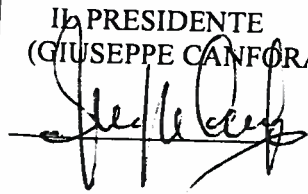 IL PRESIDENTE
(GIUSEPPE CANFORA